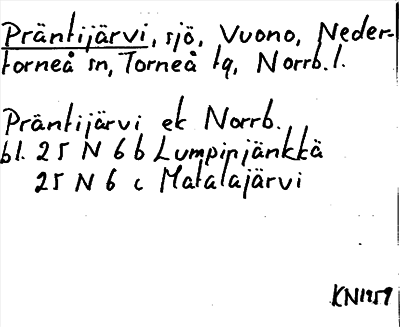 Präntijärvi, sjö, Vuono, Neder-
torneå sn, Torneå tg, Norrb. l.
Präntijärvi ek Norrb.
bl. 25 N 6 b Lumpinjänkkä
25 N 6 c Matalajärvi
KN1959